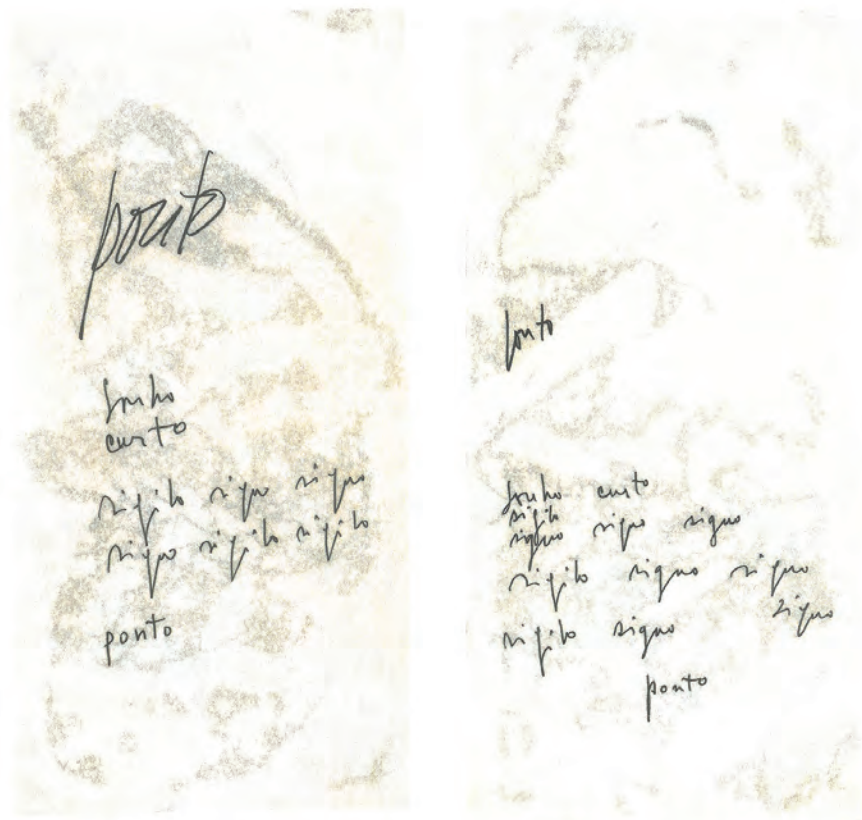 ponto
curto
sigilo signo signo
signo sigilo sigilo
ponto
ponto
curto
sigilo
signo signo signo
sigilo signo signo
signo
sigilo signo
ponto